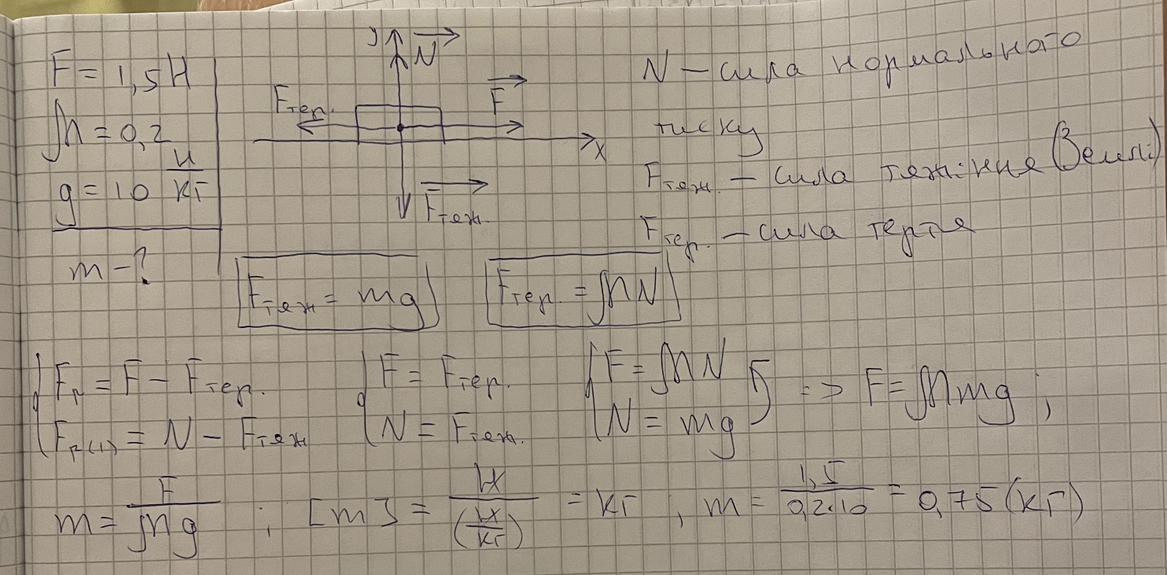 F = 1,5 Н
μ = 0,2
g = 10 Н/кг
m - ?
y
N
Fтер.
F
x
Fтяж.
N – сила нормального
тиску
Fтяж. – сила тяжіння (Землі)
Fтер. – сила тертя
Fтяж = mg
Fтер. = μN
{ Fр = F – Fтер. { F = Fтер. { F = μN } => F = μmg ;
{ Fр(1) = N – Fтяж { N = Fтяж. { N = mg }
m = F/μg ; [m] = Н/(Н/кг) = кг , m = 1,5/0,2·10 = 0,75 (кг)